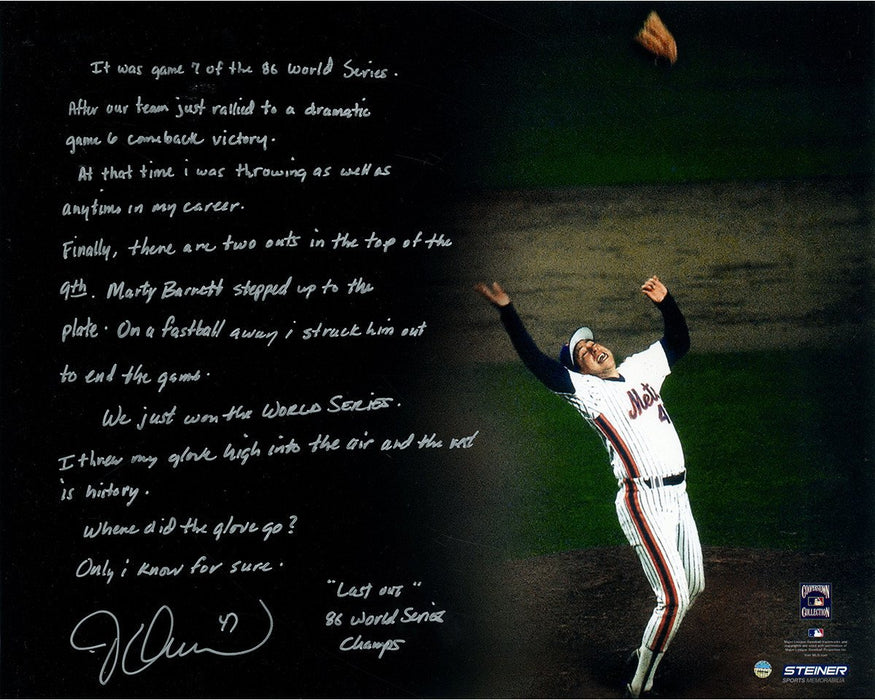 It was game 7 of the 86 World Series.
After our team just rallied to a dramatic
game 6 comeback victory.
At that time i was throwing as well as
anytime in my career.
Finally, there are two outs in the top of the
9th. Marty Barrett stepped up to the
plate. On a fastball away i struck him out
to end the game.
We just won the WORLD SERIES.
I threw my glove high into the air and the rest
is history.
Where did the glove go?
Only i know for sure.
"Last out"
86 World Series
Champs
47
Mets
4
COOPERSTOWN
COLLECTION
STEINER
SPORTS MEMORABILIA